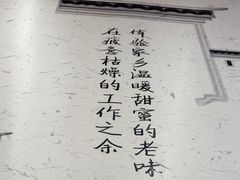 在疲惫枯燥的工作之余
体验家乡温暖甜蜜的老味